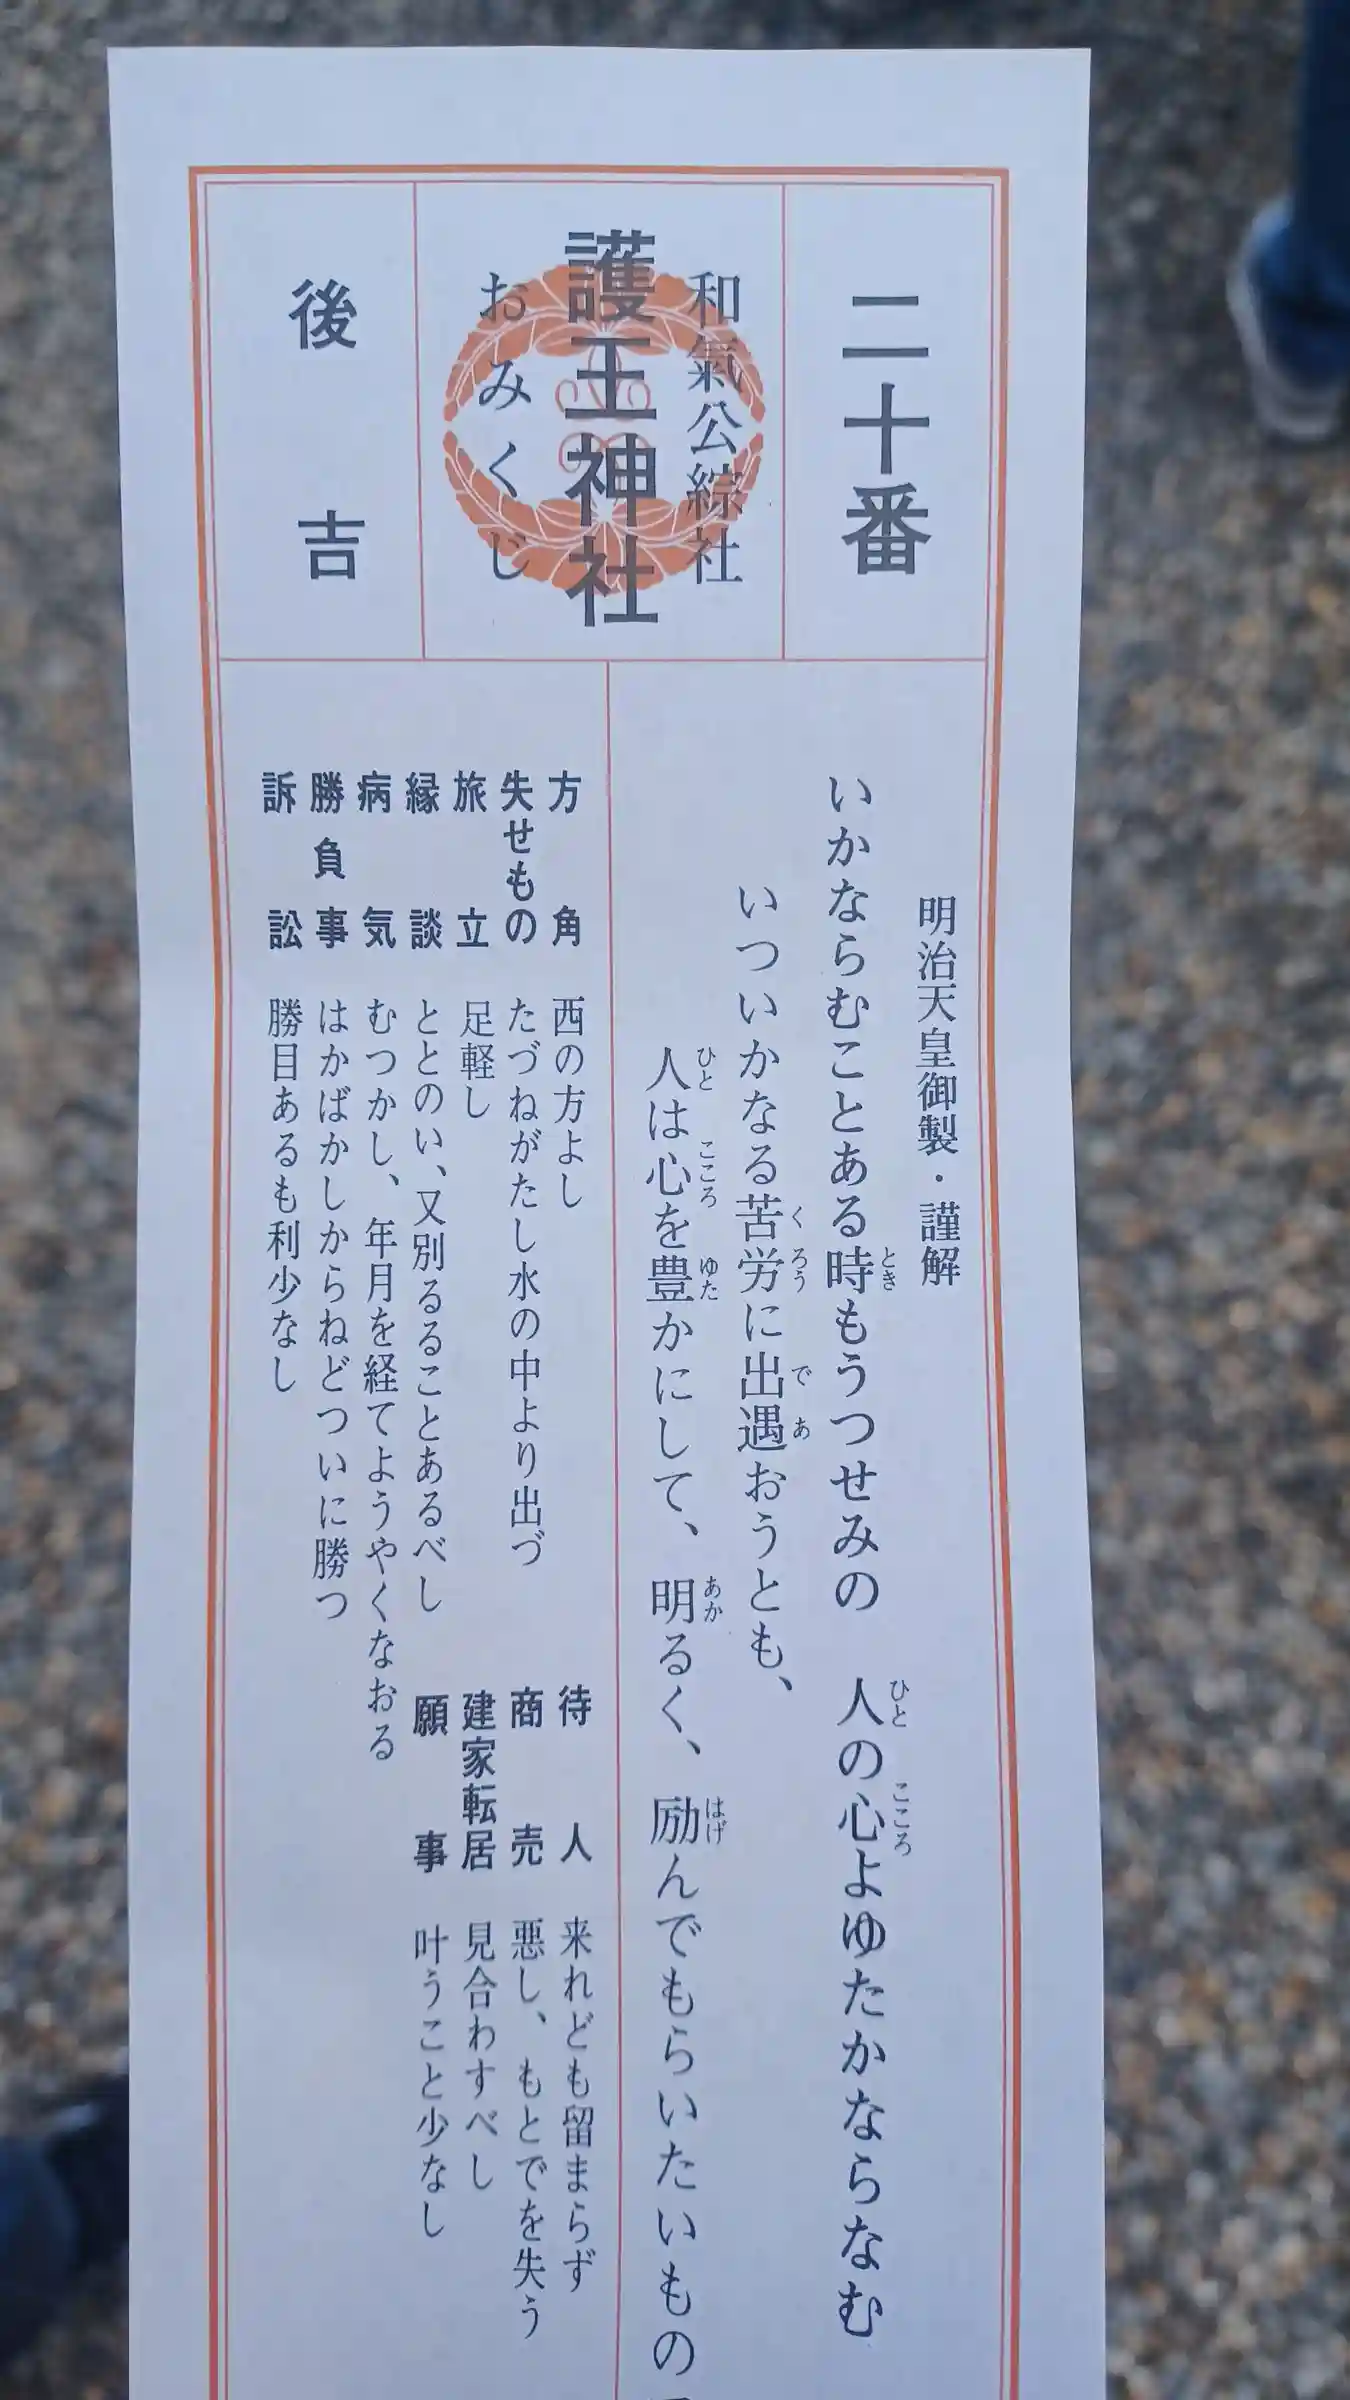 二十番
和氣公綜社
護王神社
おみくじ
後吉
明治天皇御製・謹解
いかならむことある時もうつせみの　人の心よゆたかならなむ
いついかなる苦労に出遇おうとも、
人は心を豊かにして、明るく、励んでもらいたいもの
方角　西の方よし
失せもの　たづねがたし水の中より出づ
旅立　足軽し
縁談　ととのい、又別るることあるべし
病気　むつかし、年月を経てようやくなおる
勝負事　はかばかしからねどついに勝つ
訴訟　勝目あるも利少なし
待人　来れども留まらず
商売　悪し、もとでを失う
建家転居　見合わすべし
願事　叶うこと少なし